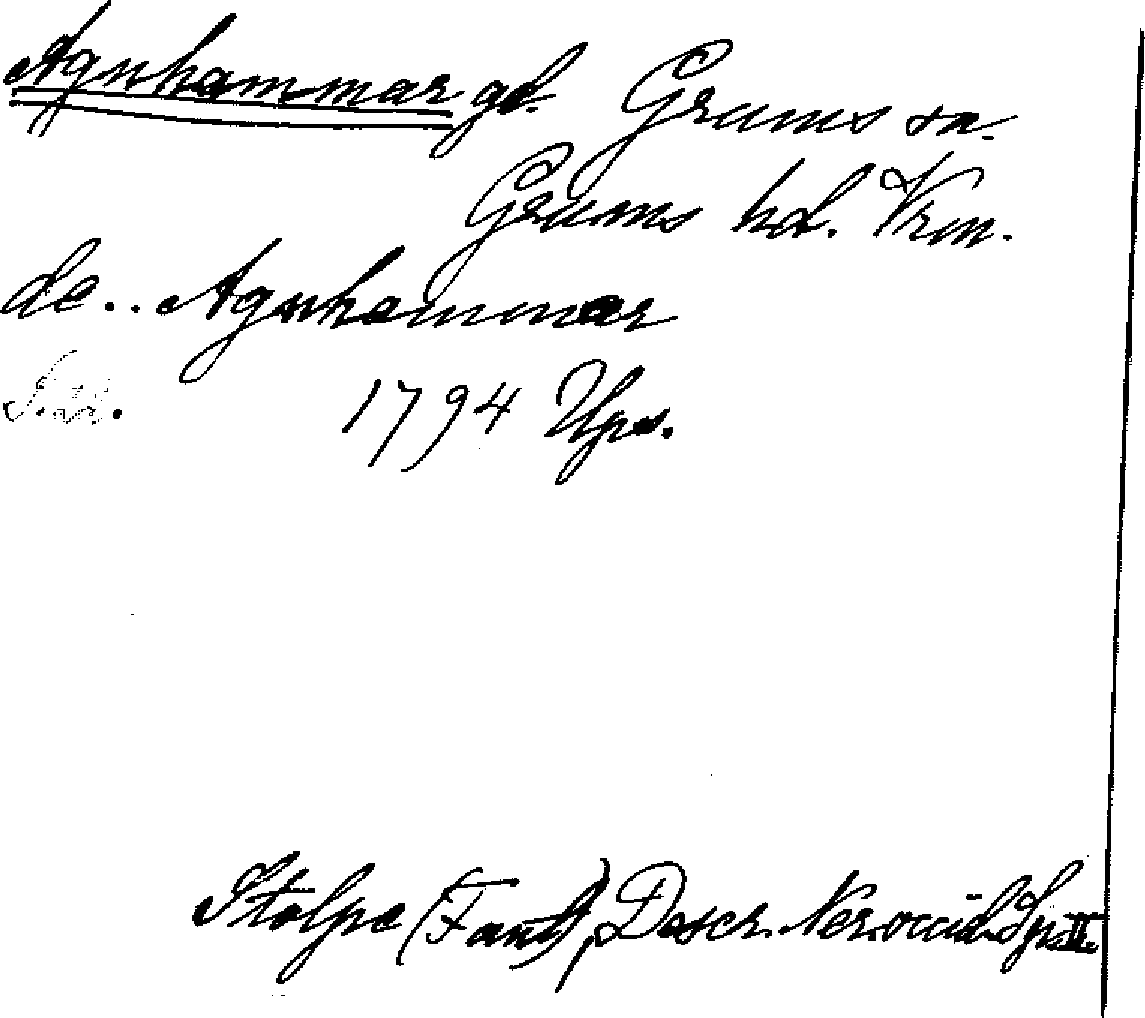 Agnhammar gd. Grums sn.
Grums hd. Vrm.
de.. Agnhammar
1794 Ups.
Stolpe (Fant), Descr. Ner. occid. Sp. II.